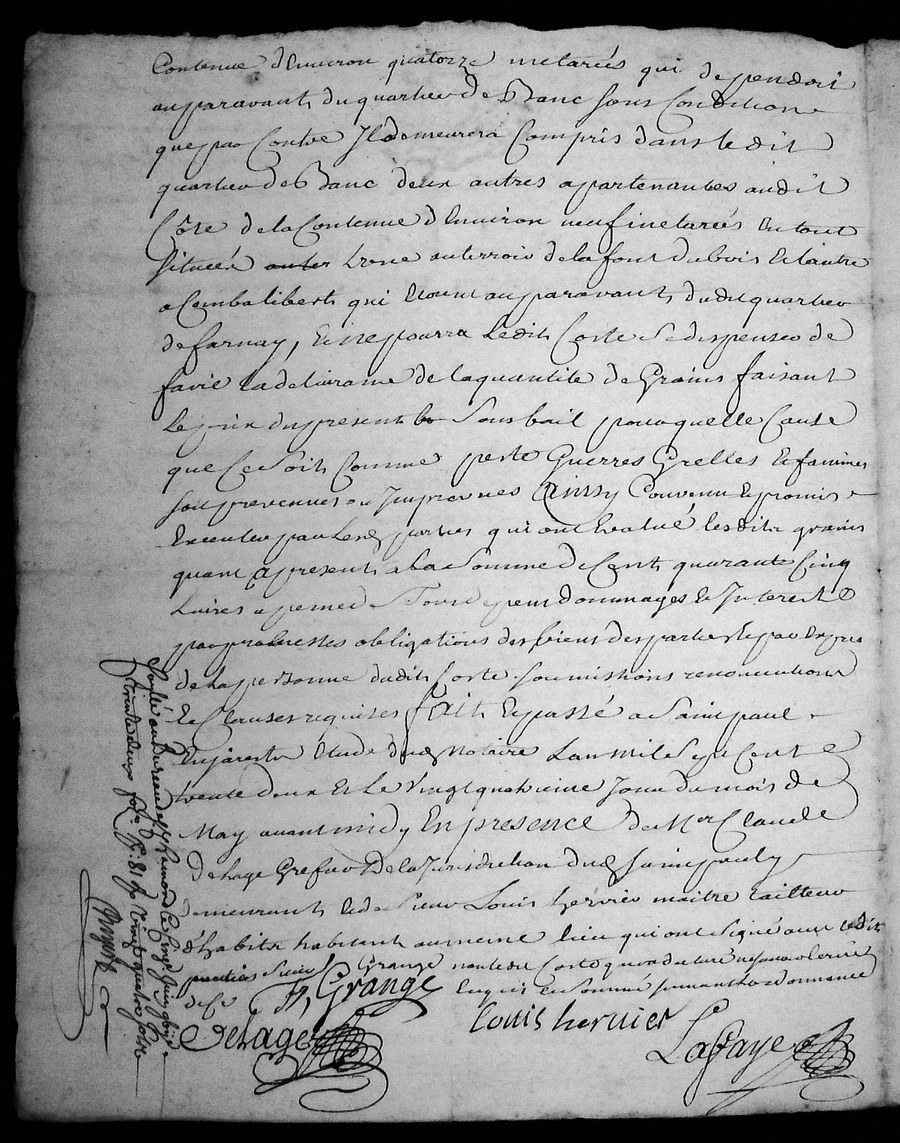 Contenue d'Environ quatorze metarées qui dependoit
auparavant du quartier de Banc sous Condition
que par Contre Il demeurera Compris dans ledit
quartier de Banc deux autres apartenantes audit
Côte de la Contenue d'Environ neuf metarées En tout
situées Lune au terroir de la font du bois Et lautre
a Combalibert qui Etoient auparavant dudit quartier
de farnay, Et ne pourra Ledit Coste Se dispenser de
faire la delivrance de la quantité de Grains faisant
Le prix du present Sous bail pour quelle Cause
que Ce Soit Comme peste Guerres Grelles Et famines
soit prevenues ou Impreveues Ainsy Convenu Et promis
Executer par Les parties qui ont Evalué lesdits grains
quant a present a la Somme de Cent quarante Cinq
Livres a peine de Tous depens dommages Et Interests
par promesses obligations des biens des parties Et par Expres
de la personne dudit Coste soumissions renonciations
Et Clauses requises fait Et passé a Saint paul
En jarest Etude dud Notaire L'an mil Sept Cent
trente deux Et Le Vingt quatrieme Jour du mois de
May avant midy En presence de Mer Claude
Delage Greffier de la Jurisdiction dud Saint pauly
demeurant Et de Sieur Louis hervier maitre tailleur
d'habits habitant au meme lieu qui ont signé avec ledit
Grange non ledit Coste qui a declaré ne scavoir
de ce Enquis Et Sommé suivant Lordonnance
F, Grange
Delage
Louis hervier
Lafaye
Controllé au Bureau de St Chamond
trente deux folio 81